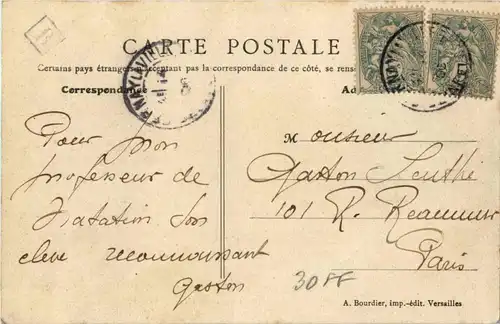 CARTE POSTALE
Certains pays étrangers acceptant pas la correspondance de ce côté, se rens
Correspondance
Pour mon
professeur de
Natation Son
eleve reconnaissant
Gaston
Monsieur
Gaston
101 R. Reaumur
Paris
30FF
A. Bourdier, imp.-édit. Versailles